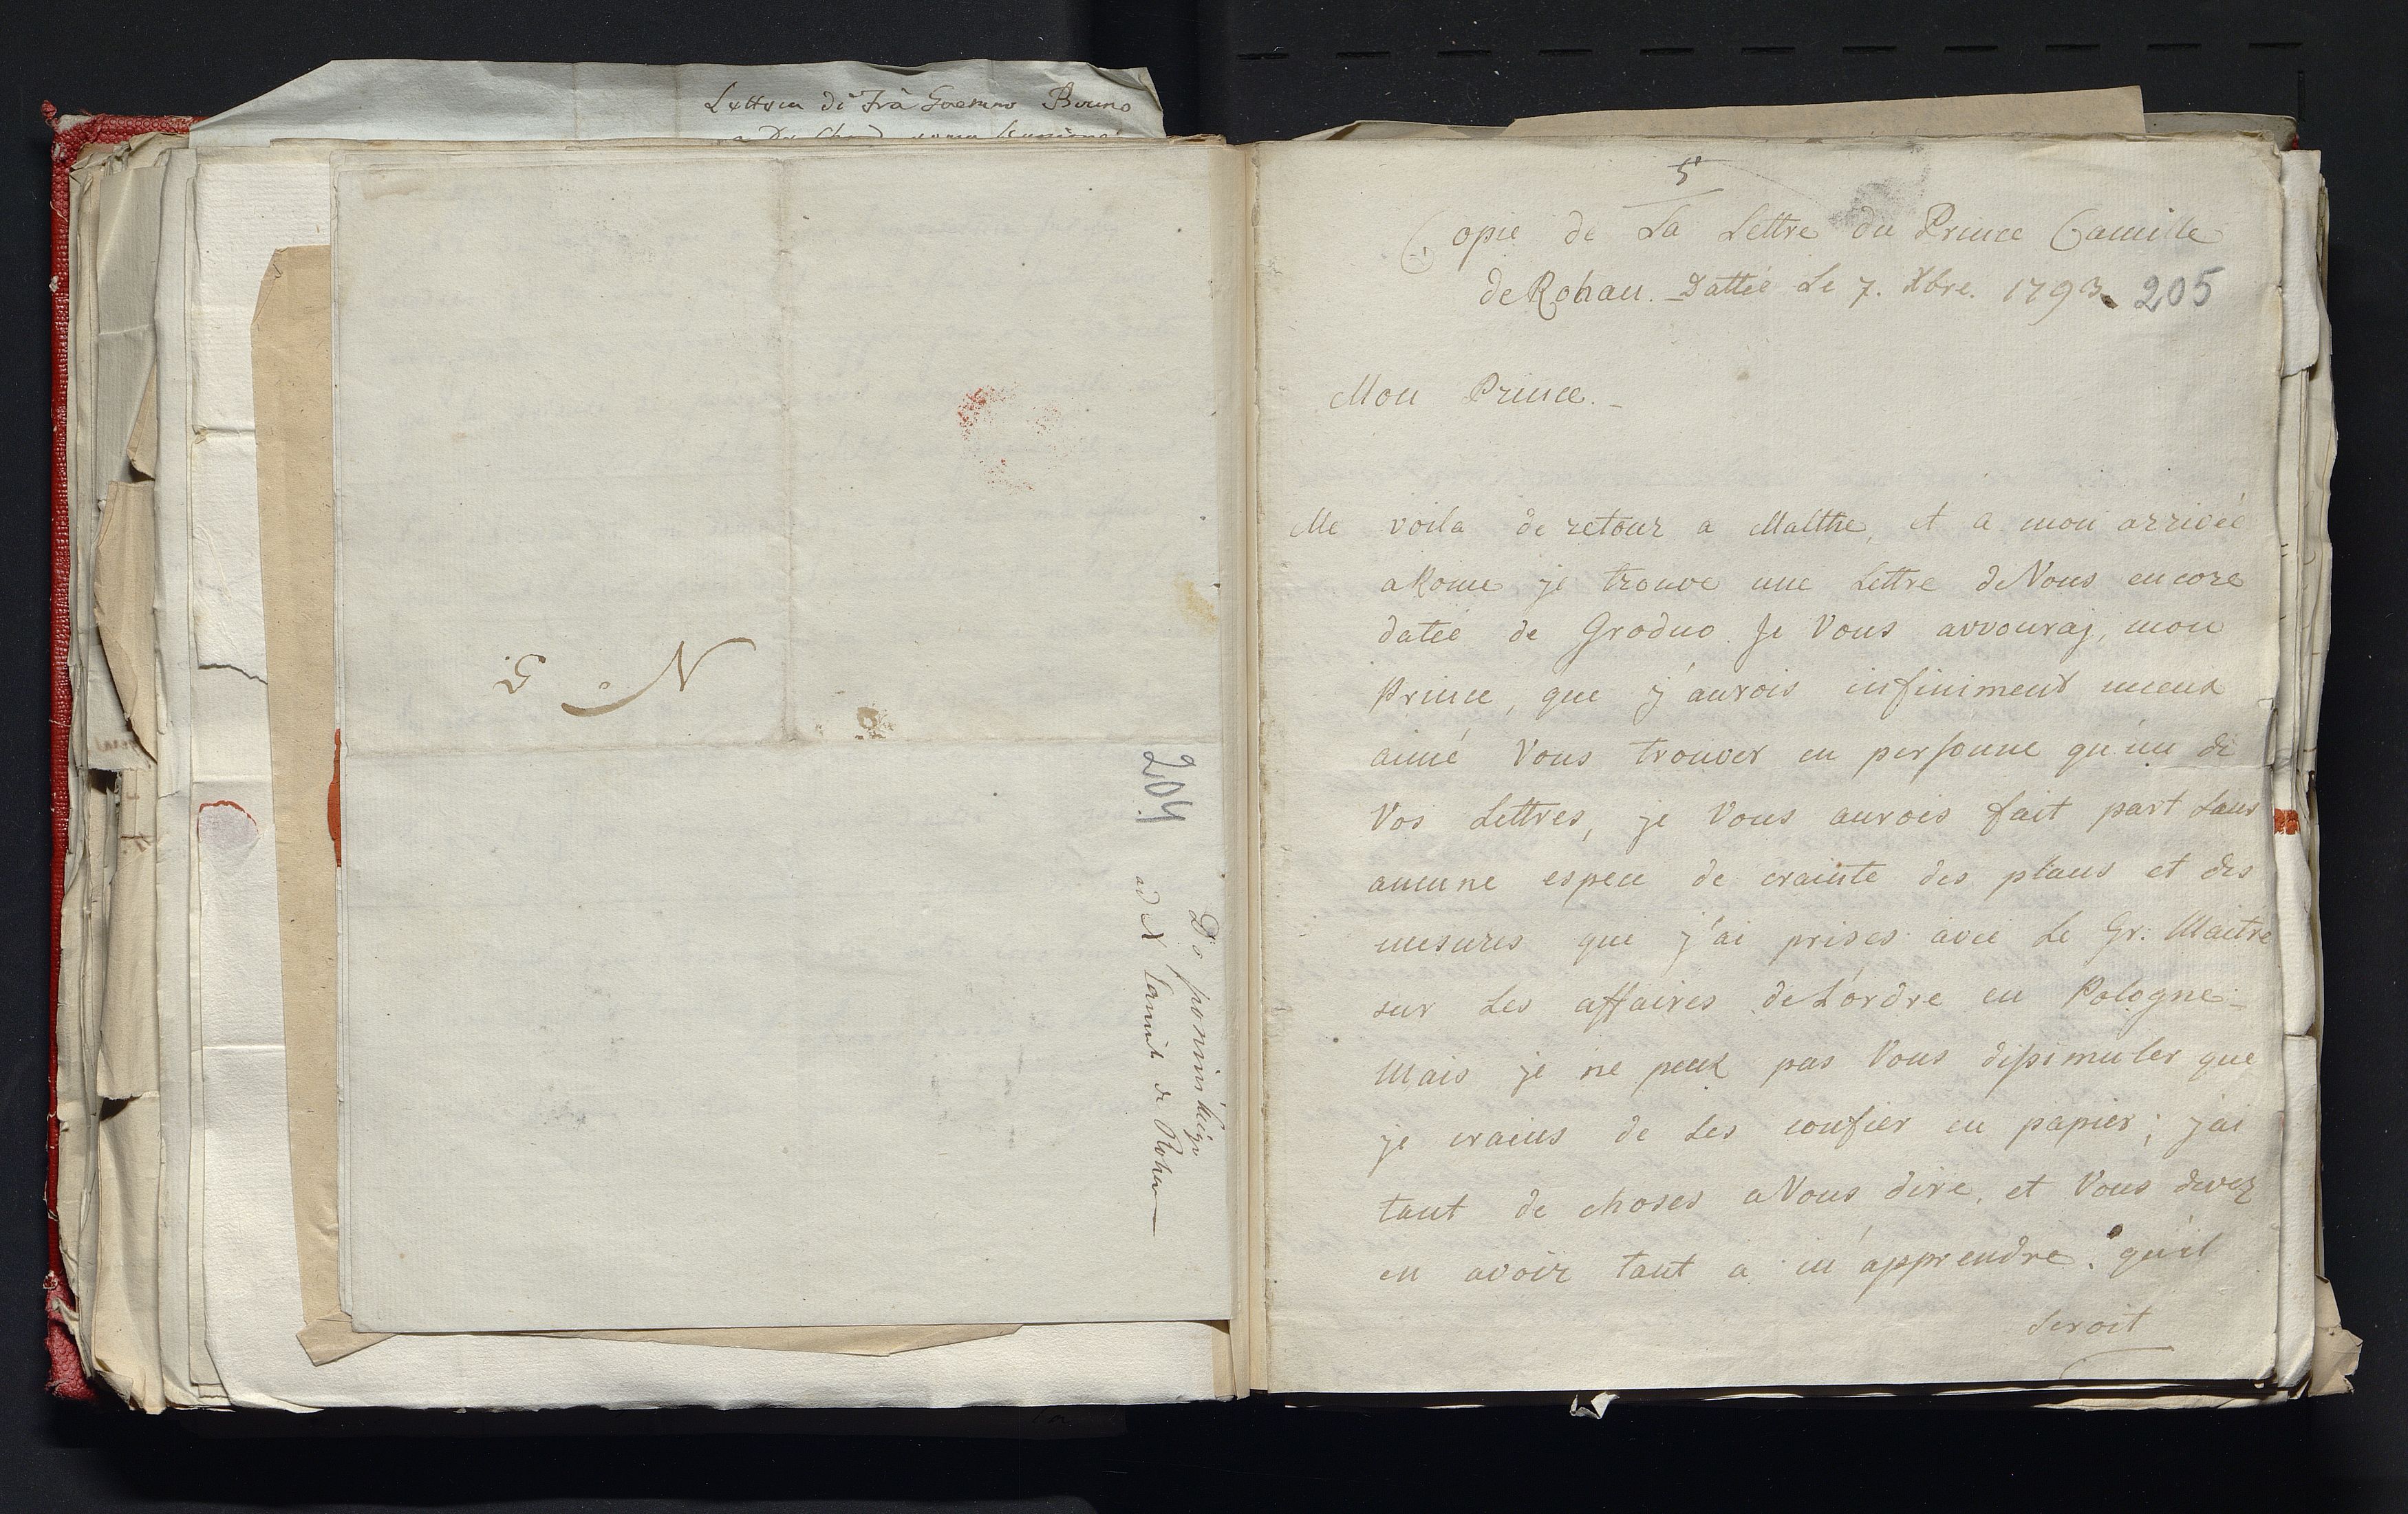 Lettera di Frà Gaetano Bruno
N. 5
204
Do ponińskiego
ad X Camil de Rohan
5
Copie de La Lettre du Prince Camille
de Rohan. Dattée Le 7. Xbre. 1793.
205
Mon Prince.
Me voila de retour a Malthe, et a mon arrivée
a Rome je trouve une Lettre de Vous encore
datée de Grodno. Je Vous avvouraj, mon
Prince, que j'aurois infiniment mieux
aimé Vous trouver en personne qu'un de
Vos Lettres, je Vous aurois fait part sans
aucune espece de crainte des plans et des
mesures que j'ai prises avec Le Gr: Maitre
sur Les affaires de L'ordre en Pologne.
Mais je ne peux pas Vous dissimuler que
je crains de Les confier en papier; j'ai
tant de choses a Vous dire, et Vous devez
en avoir tant a m'apprendre, qu'il
seroit